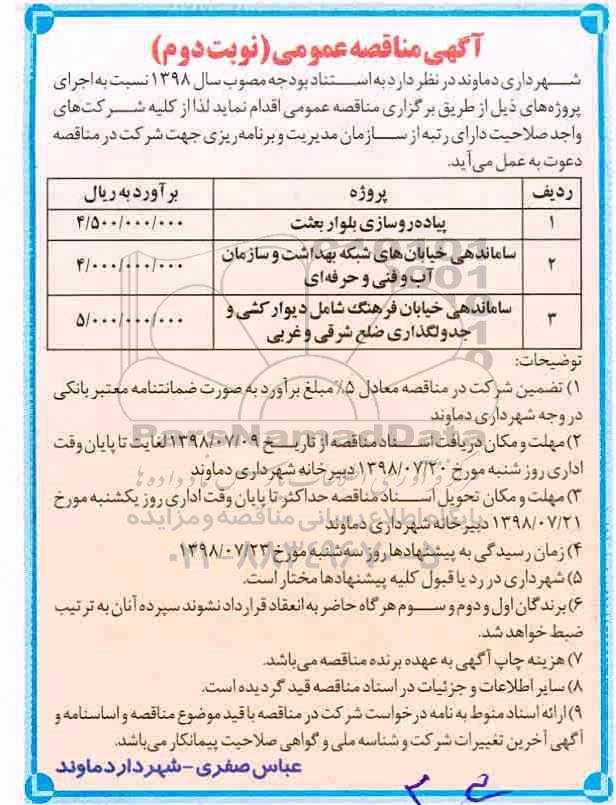 آگهی مناقصه عمومی (نوبت دوم)
شهرداری دماوند در نظر دارد به استناد بودجه مصوب سال ۱۳۹۸ نسبت به اجرای
پروژه‌های ذیل از طریق برگزاری مناقصه عمومی اقدام نماید لذا از کلیه شرکت‌های
واجد صلاحیت دارای رتبه از سازمان مدیریت و برنامه‌ریزی جهت شرکت در مناقصه
دعوت به عمل می‌آید.
ردیف پروژه برآورد به ریال
۱ پیاده‌روسازی بلوار بعثت ۴/۵۰۰/۰۰۰/۰۰۰
۲ ساماندهی خیابان‌های شبکه بهداشت و سازمان ۴/۰۰۰/۰۰۰/۰۰۰
آب و فنی و حرفه‌ای
۳ ساماندهی خیابان فرهنگ شامل دیوارکشی و ۵/۰۰۰/۰۰۰/۰۰۰
جدولگذاری ضلع شرقی و غربی
توضیحات:
۱) تضمین شرکت در مناقصه معادل ۵٪ مبلغ برآورد به صورت ضمانتنامه معتبر بانکی
در وجه شهرداری دماوند
۲) مهلت و مکان دریافت اسناد مناقصه از تاریخ ۱۳۹۸/۰۷/۰۹ لغایت تا پایان وقت
اداری روز شنبه مورخ ۱۳۹۸/۰۷/۲۰ دبیرخانه شهرداری دماوند
۳) مهلت و مکان تحویل اسناد مناقصه حداکثر تا پایان وقت اداری روز یکشنبه مورخ
۱۳۹۸/۰۷/۲۱ دبیرخانه شهرداری دماوند
۴) زمان رسیدگی به پیشنهادها روز سه‌شنبه مورخ ۱۳۹۸/۰۷/۲۳
۵) شهرداری در رد یا قبول کلیه پیشنهادها مختار است.
۶) برندگان اول و دوم و سوم هرگاه حاضر به انعقاد قرارداد نشوند سپرده آنان به ترتیب
ضبط خواهد شد.
۷) هزینه چاپ آگهی به عهده برنده مناقصه می‌باشد.
۸) سایر اطلاعات و جزئیات در اسناد مناقصه قید گردیده است.
۹) ارائه اسناد منوط به نامه درخواست شرکت در مناقصه با قید موضوع مناقصه و اساسنامه و
آگهی آخرین تغییرات شرکت و شناسه ملی و گواهی صلاحیت پیمانکار می‌باشد.
عباس صفری - شهردار دماوند
ParsNamadData
پایگاه اطلاع رسانی مناقصه و مزایده
۰۲۱-۸۸۳۴۹۶۷۰-۵